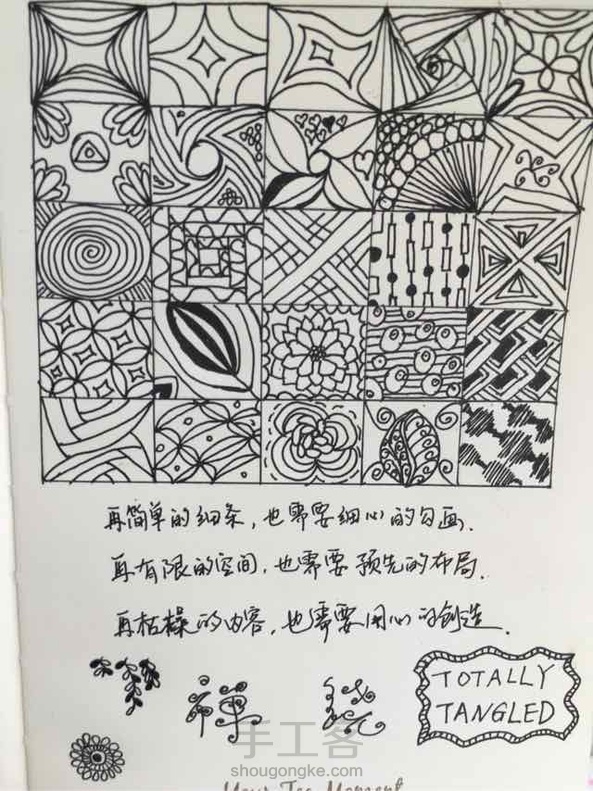 再简单的细条，也需要细心的勾画。
再有限的空间，也需要预先的布局。
再枯橾的内容，也需要用心的创造。
禅绕
TOTALLY
TANGLED
手工客
shougongke.com
Your Tea Moment